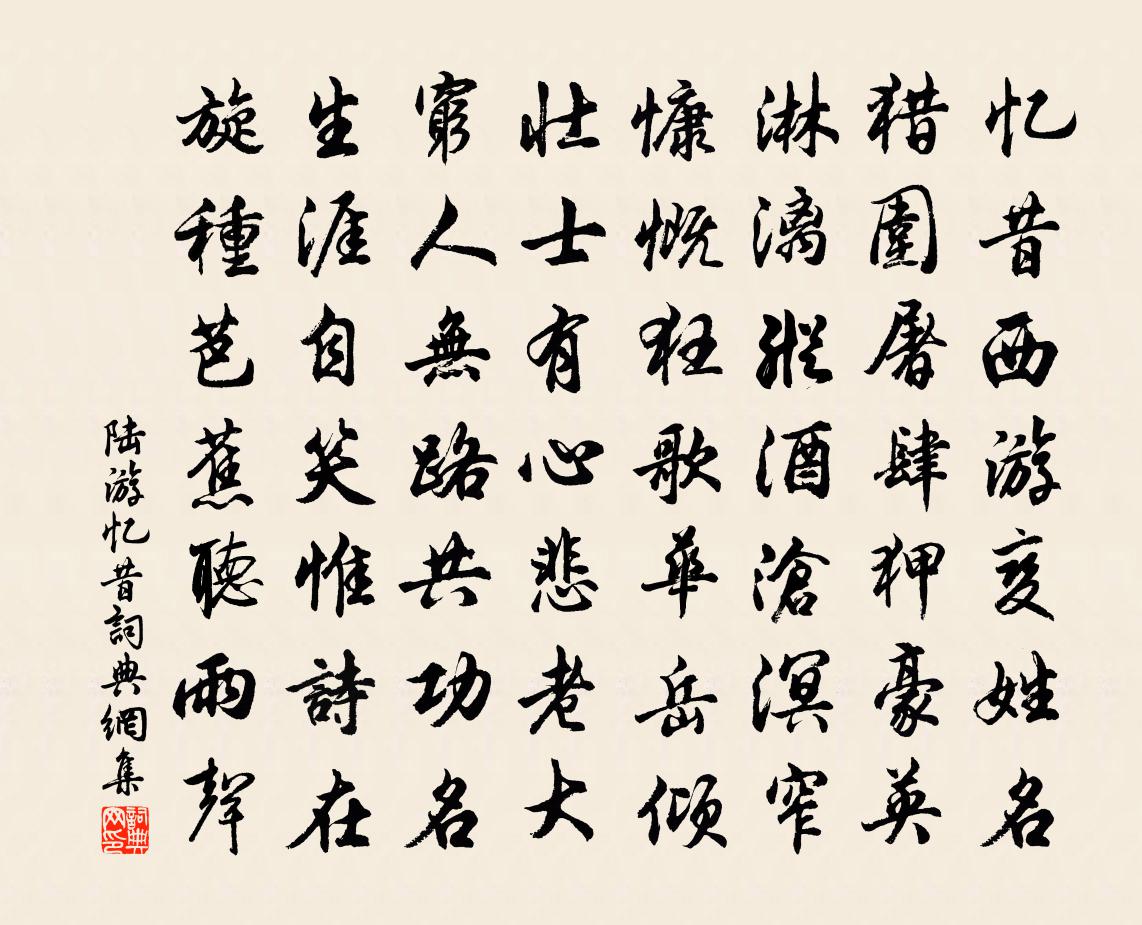 忆昔西游变姓名
猎围屠肆狎豪英
淋漓纵酒沧溟窄
慷慨狂歌华岳倾
壮士有心悲老大
穷人无路共功名
生涯自笑惟诗在
旋種芭蕉聽雨聲
陆游忆昔詞典網集
詞典网印